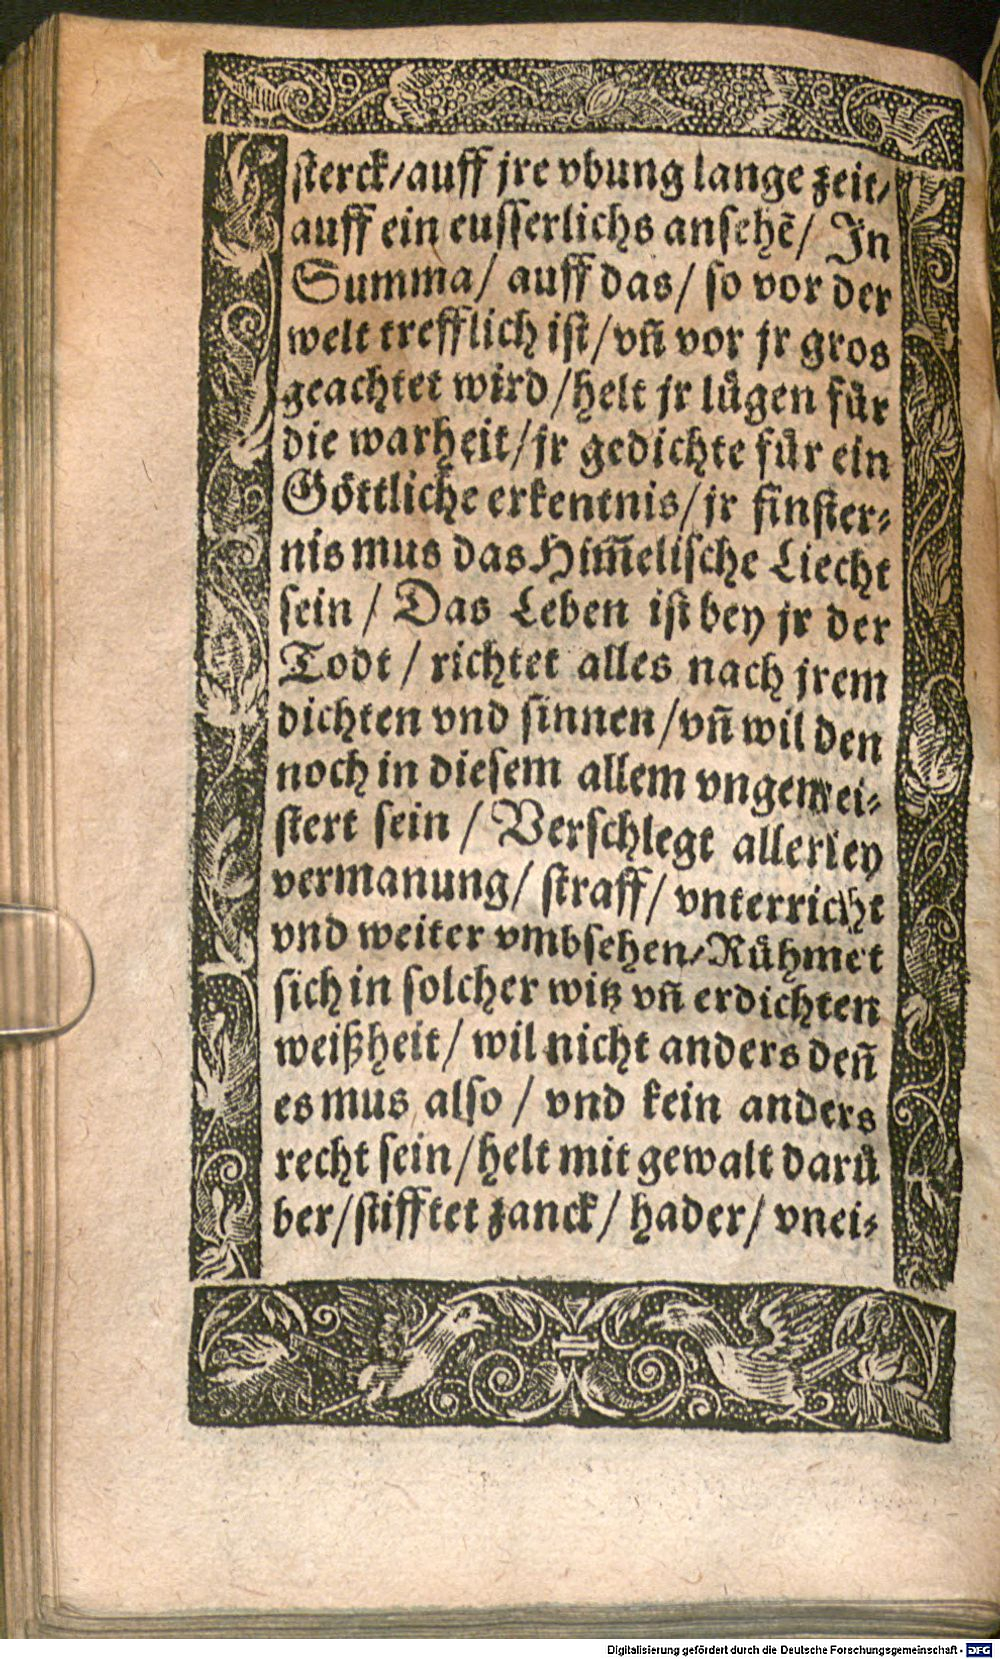 sterck/auff jre vbung lange zeit/
auff ein eusserlichs ansehē/ In
Summa/ auff das/ so vor der
welt trefflich ist/vn̄ vor jr gros
geachtet wird/helt jr lu᷉gen fu᷉r
die warheit/jr gedichte fu᷉r ein
Göttliche erkentnis/jr finster⸗
nis mus das Him̄elische Liecht
sein/ Das Leben ist bey jr der
Todt/ richtet alles nach jrem
dichten vnd sinnen/vn̄ wil den
noch in diesem allem vngemei⸗
stert sein/ Verschlegt allerley
vermanung/ straff/ vnterricht
vnd weiter vmbsehen/Rühmet
sich in solcher witz vn̄ erdichten
weißheit/ wil nicht anders den̄
es mus also/ vnd kein anders
recht sein/helt mit gewalt darü
ber/stifftet zanck/ hader/ vnei⸗
Digitalisierung gefördert durch die Deutsche Forschungsgemeinschaft - DFG